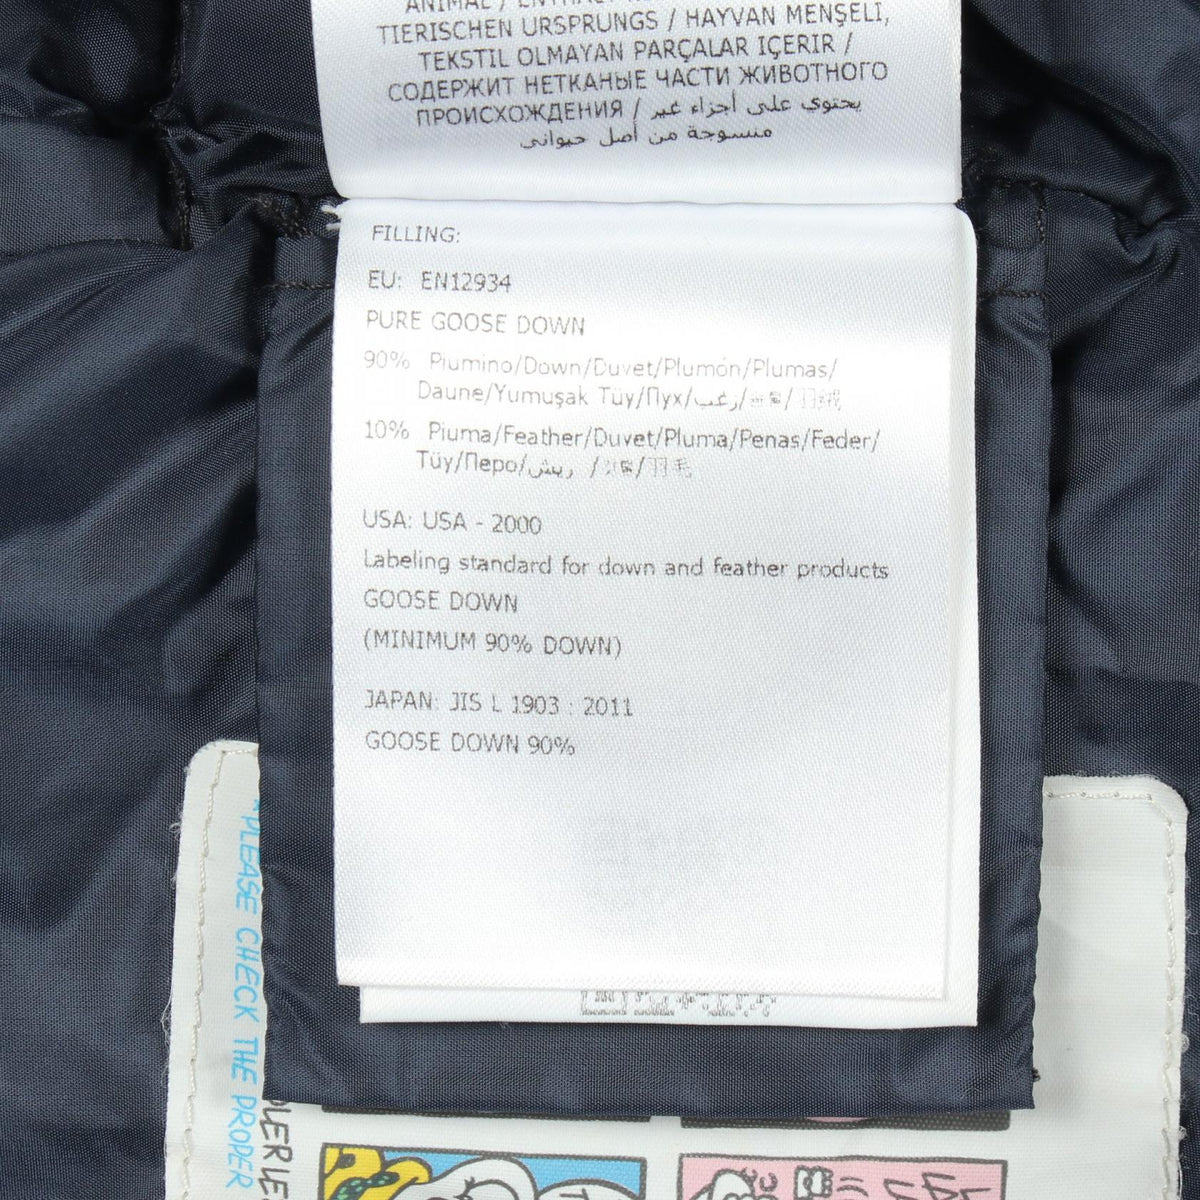 TIERISCHEN URSPRUNGS / HAYVAN MENŞELİ,
TEKSTİL OLMAYAN PARÇALAR IÇERIR /
СОДЕРЖИТ НЕТКАНЫЕ ЧАСТИ ЖИВОТНОГО
ПРОИСХОЖДЕНИЯ / يحتوي على أجزاء غير
منسوجة من أصل حيوانى
FILLING:
EU: EN12934
PURE GOOSE DOWN
90% Piumino/Down/Duvet/Plumón/Plumas/
Daune/Yumuşak Tüy/Пух/زغب/
10% Piuma/Feather/Duvet/Pluma/Penas/Feder/
Tüy/Перо/ريش /羽毛
USA: USA - 2000
Labeling standard for down and feather products
GOOSE DOWN
(MINIMUM 90% DOWN)
JAPAN: JIS L 1903 : 2011
GOOSE DOWN 90%
PLEASE CHECK THE PROPER